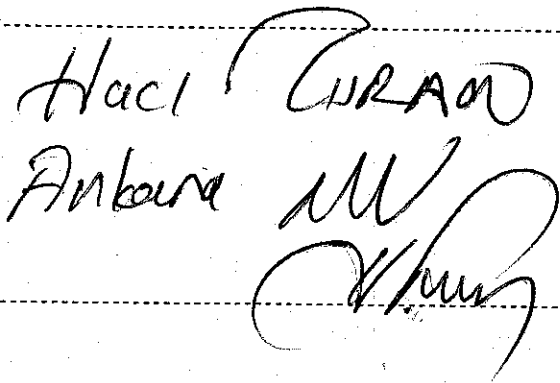 Hacı TURAN
Ankara MV